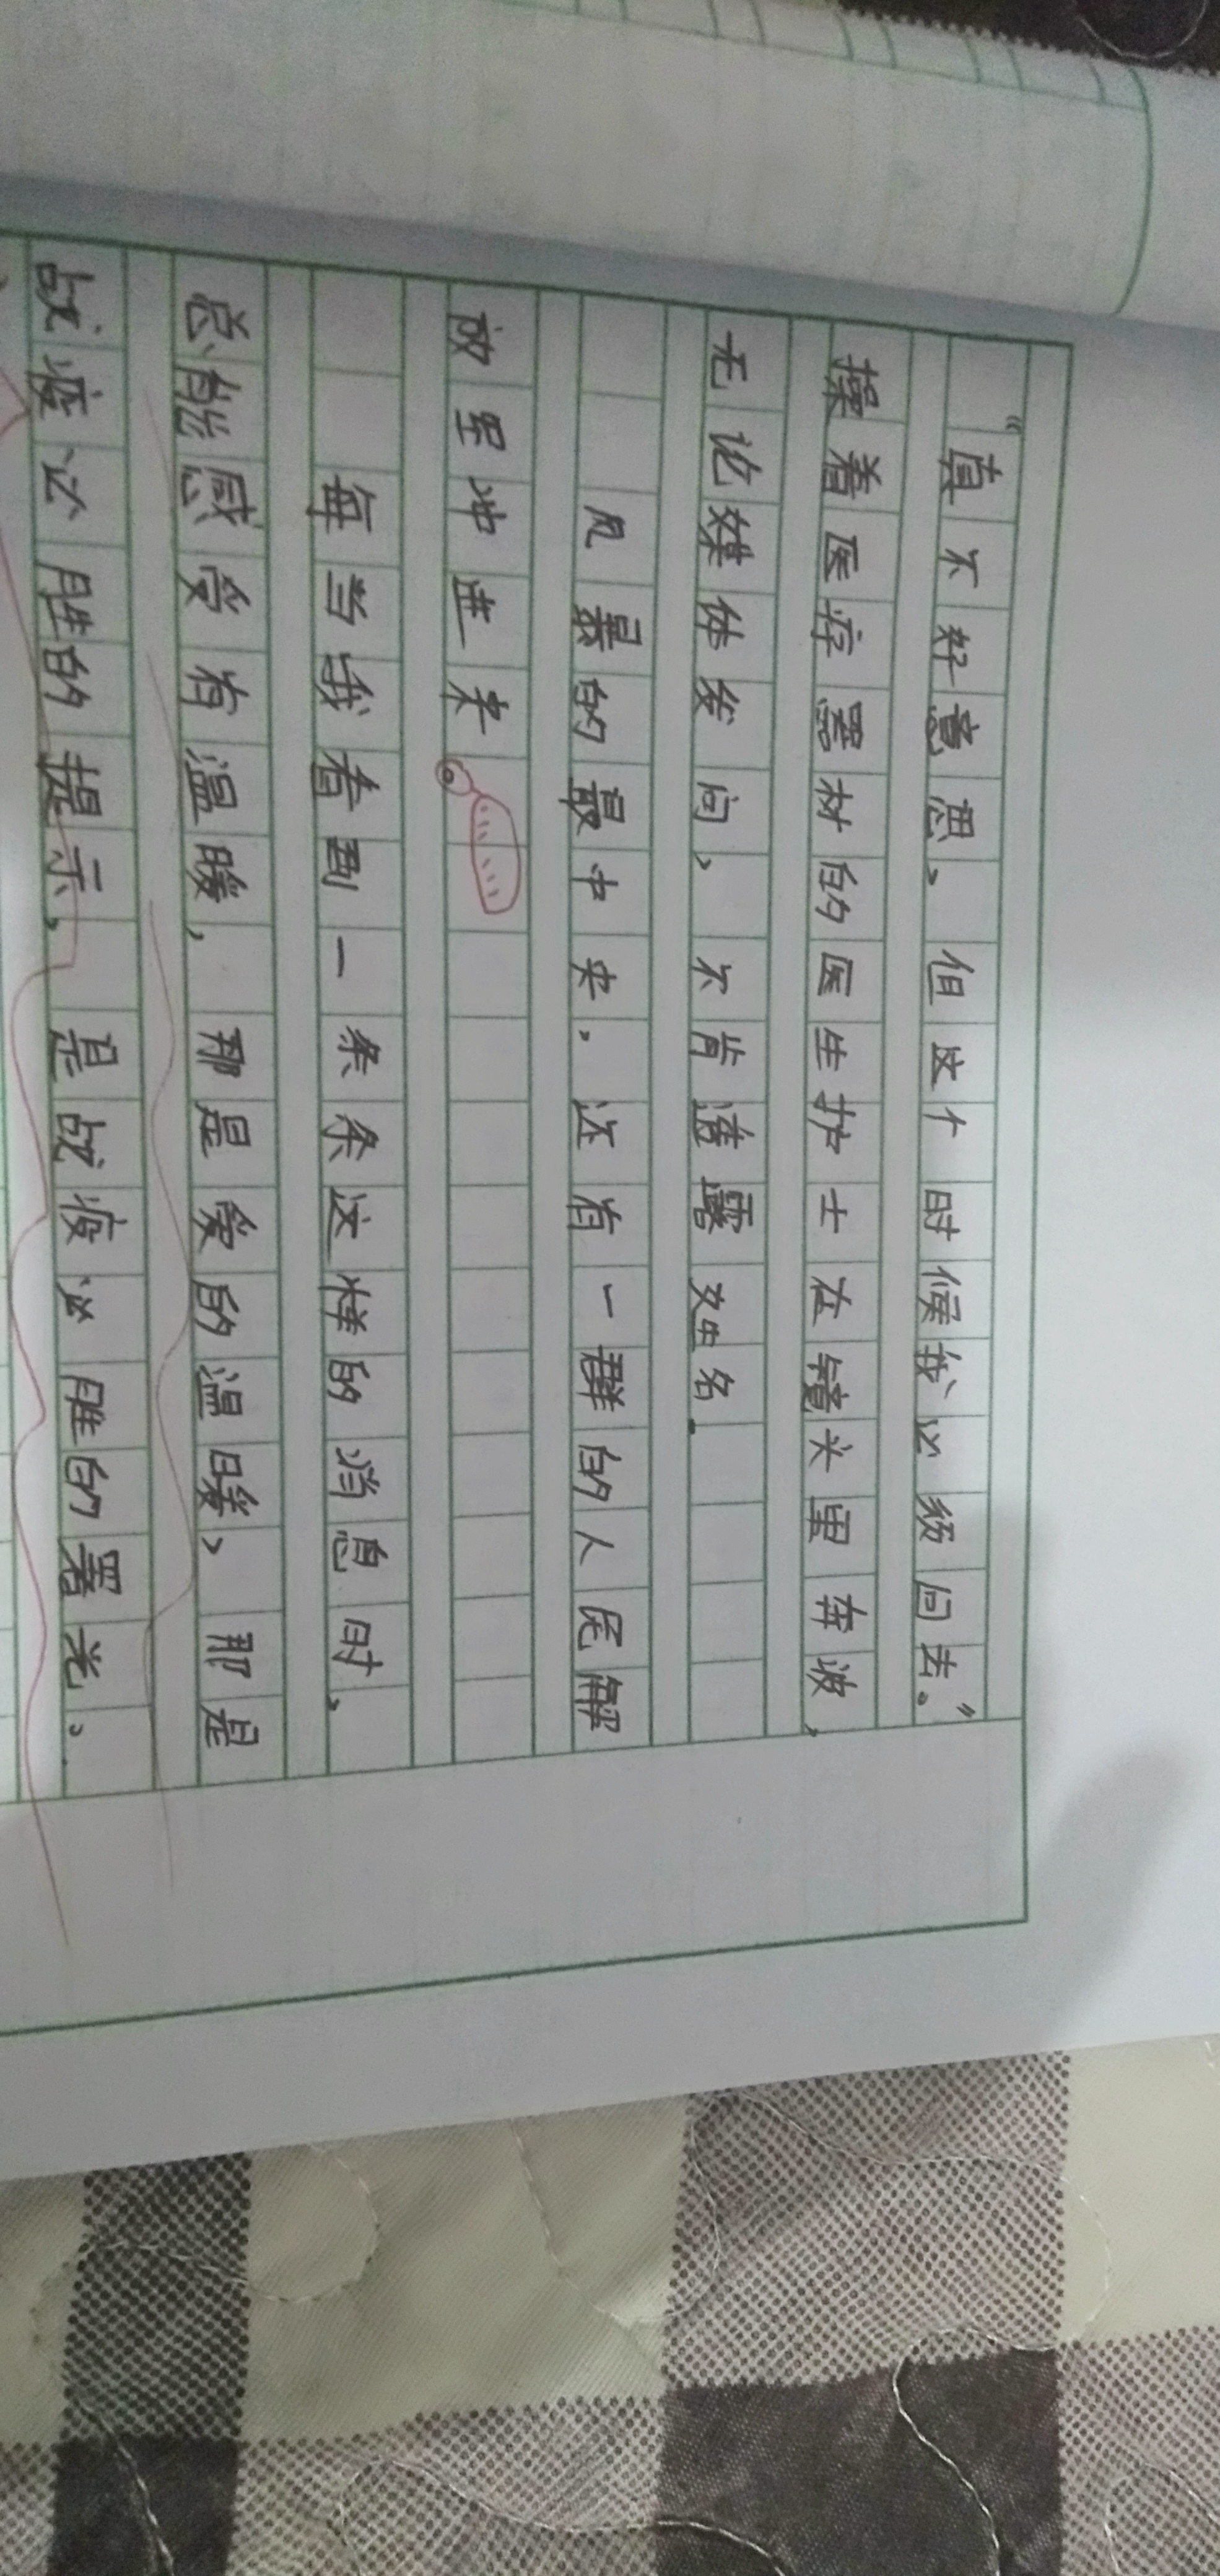 “真不好意思，但这个时候我必须回去。”
操着医疗器材的医生护士在镜头里奔波，
无论媒体发问，不肯透露姓名.
风暴的最中央，还有一群的人民解
放军冲进来。
每当我看到一条条这样的消息时，
总能感受有温暖，那是爱的温暖，那是
战疫必胜的提示，是战疫必胜的署光。